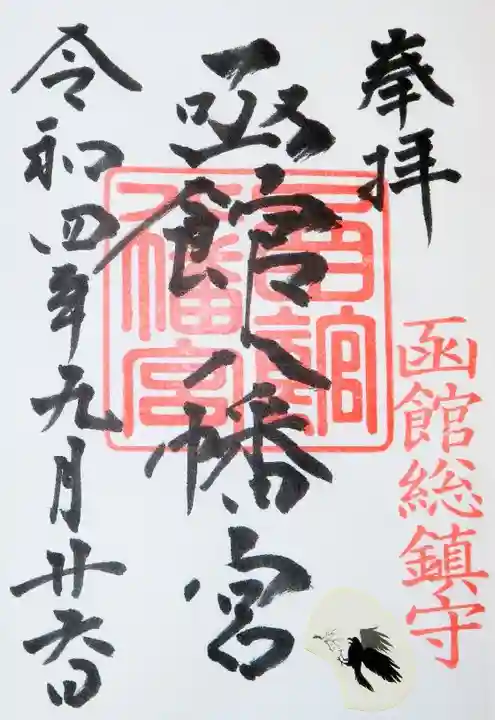 奉拝
函館総鎮守
函館八幡宮
函館八幡宮
令和四年九月廿六日